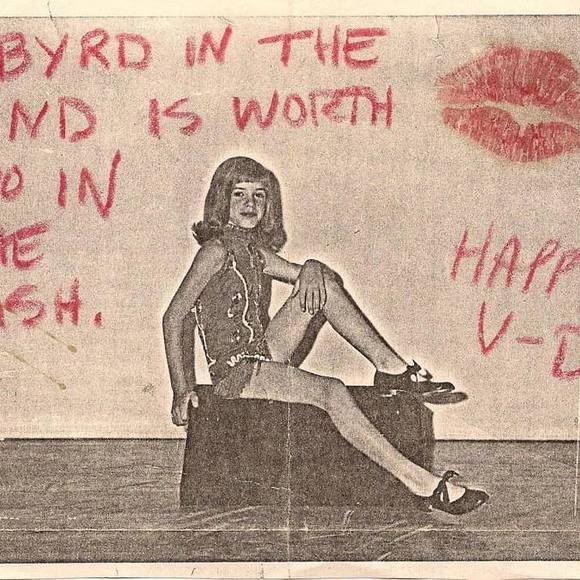 BYRD IN THE
ND IS WORTH
O IN
HE
ASH.
HAPP
V-D